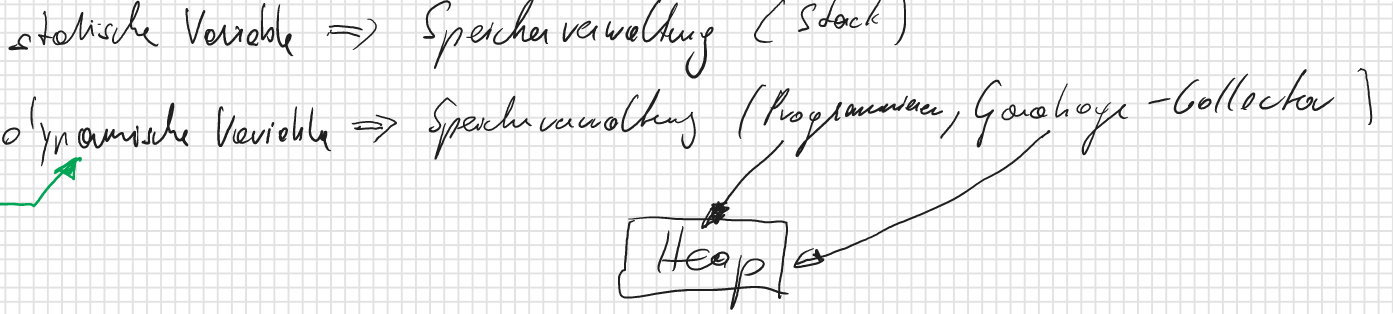 statische Variable => Speicherverwaltung (Stack)
dynamische Variable => Speicherverwaltung (Programmierer, Garbage-Collector)
Heap